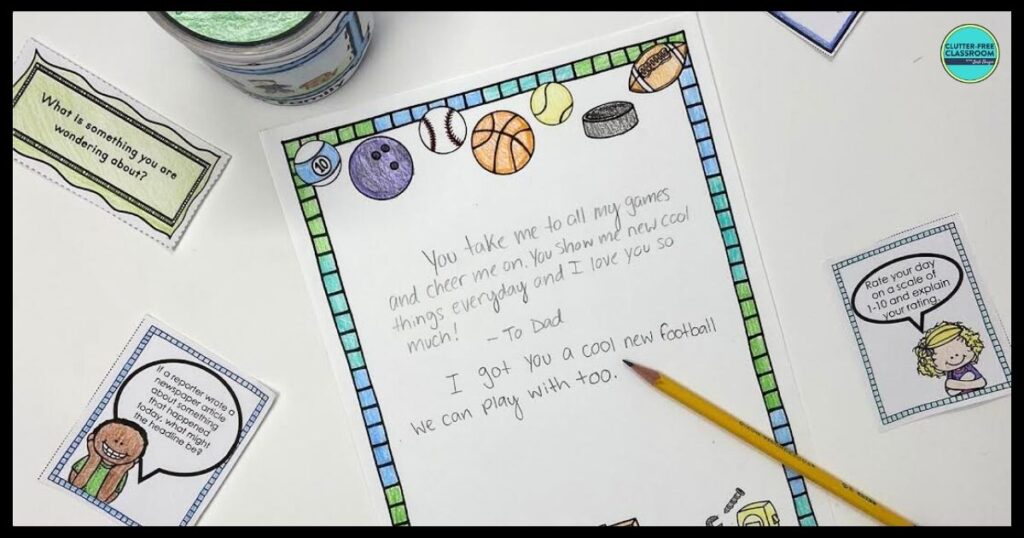 CLUTTER-FREE
CLASSROOM
What is something you are
wondering about?
10
You take me to all my games
and cheer me on. You show me new cool
things everyday and I love you so
much!
- To Dad
I got you a cool new football
we can play with too.
Rate your day
on a scale of
1-10 and explain
your rating.
If a reporter wrote a
newspaper article
about something
that happened
today, what might
the headline be?